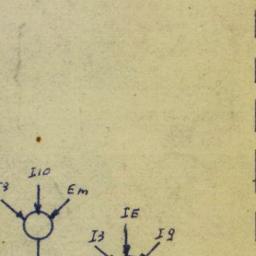 I10
Em
IE
I3 I9